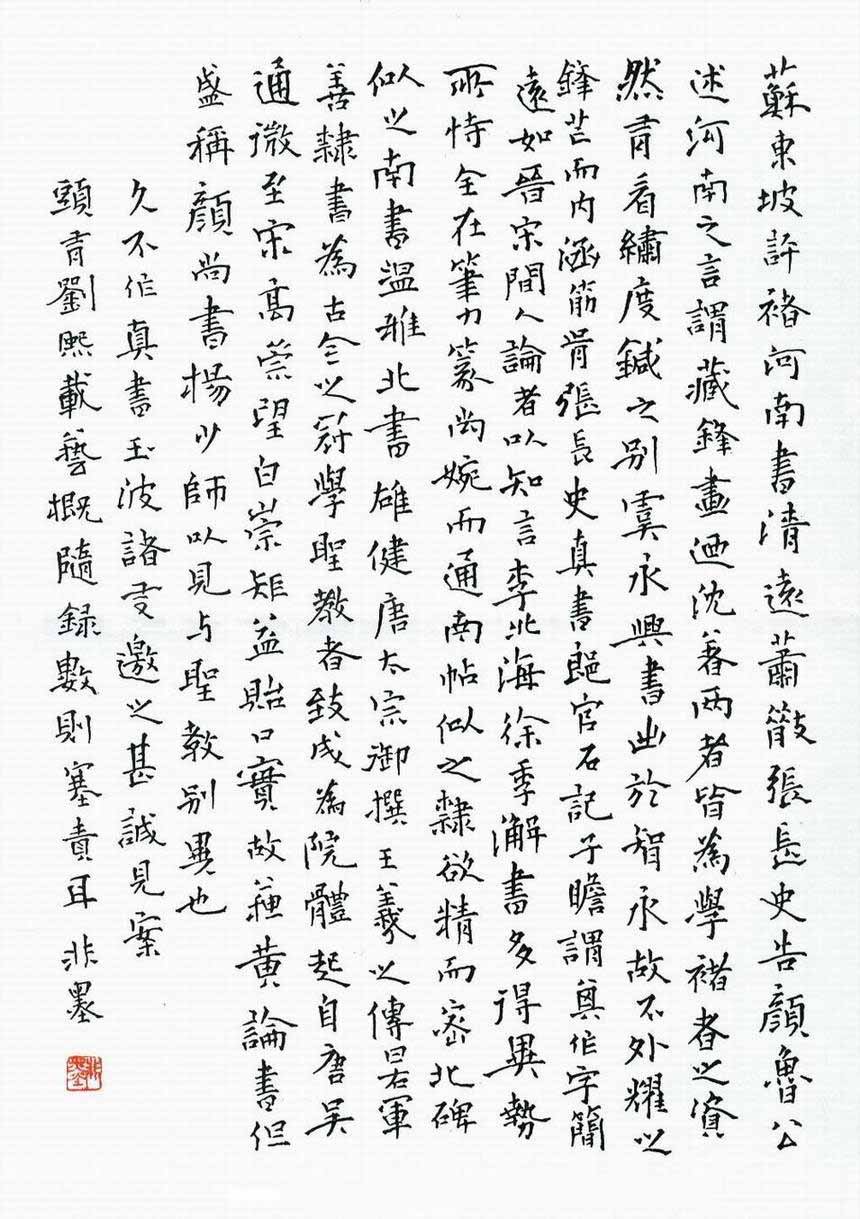 蘇東坡評褚河南書清遠蕭散張長史告顏魯公
述河南之言謂藏鋒畫迺沈著兩者皆為學褚者之資
然有看繡度鍼之別虞永興書出於智永故不外耀以
鋒芒而內涵筋骨張長史真書郎官石記子瞻謂其作字簡
遠如晉宋間人論者以知言李北海徐季澥書多得異勢
所恃全在筆力篆尚婉而通南帖似之隸欲精而密北碑
似之南書温雅北書雄健唐太宗御撰王羲之傳曰右軍
善隸書為古今之冠學聖教者致成為院體起自唐吳
通微至宋高崇望白崇矩益貽口實故蘇黃論書但
盛稱顏尚書楊少師以見与聖教別異也
久不作真書玉波諸友邀之甚誠見案
頭有劉熙載藝概隨錄數則塞責耳非墨
非墨